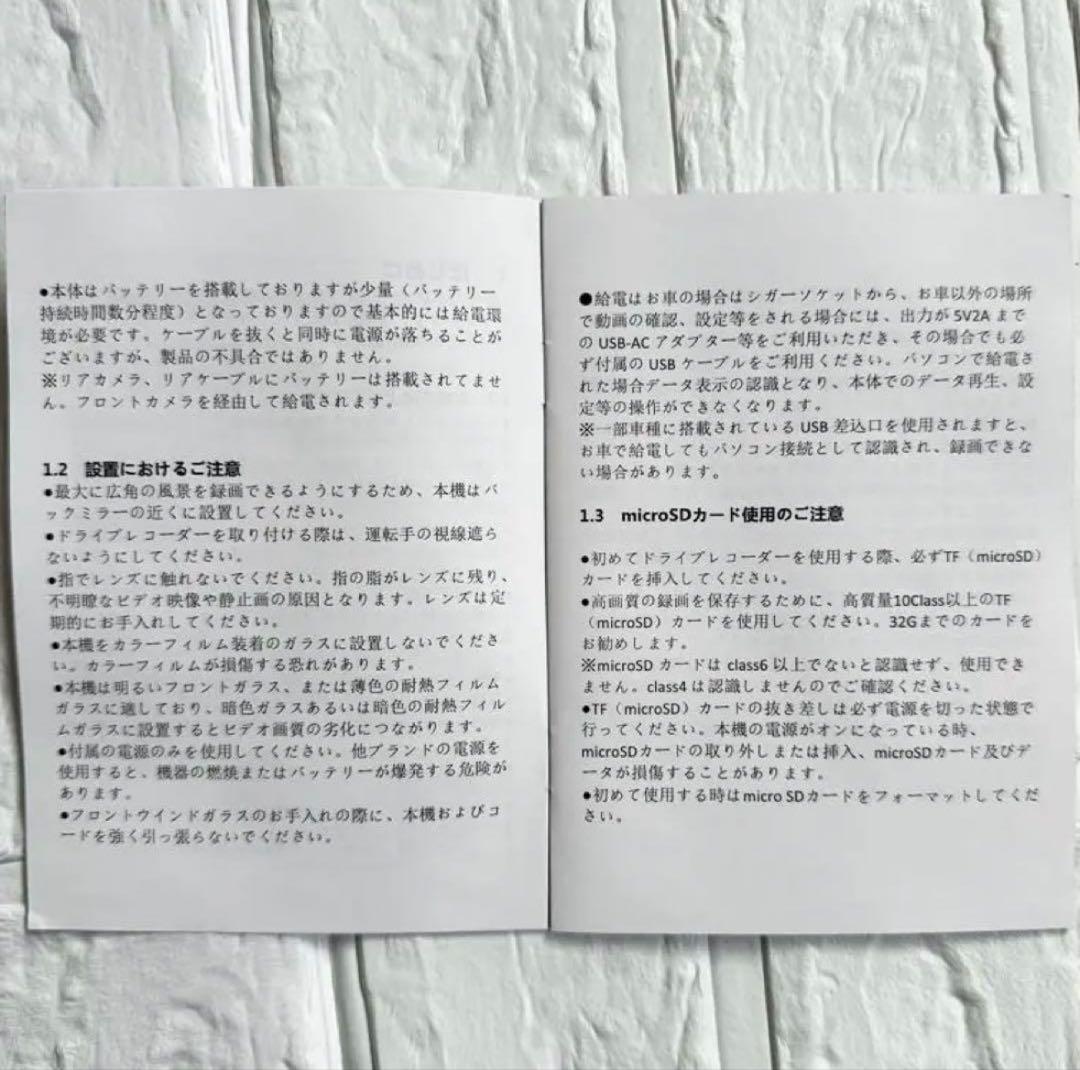 ●本体はバッテリーを搭載しておりますが少量（バッテリー
持続時間数分程度）となっておりますので基本的には給電環
境が必要です。ケーブルを抜くと同時に電源が落ちることが
ございますが、製品の不具合ではありません。
※リアカメラ、リアケーブルにバッテリーは搭載されてませ
ん。フロントカメラを経由して給電されます。
1.2 設置におけるご注意
●最大に広角の風景を録画できるようにするため、本機はバ
ックミラーの近くに設置してください。
●ドライブレコーダーを取り付ける際は、運転手の視線遮ら
ないようにしてください。
●指でレンズに触れないでください。指の脂がレンズに残り、
不明瞭なビデオ映像や静止画の原因となります。レンズは定
期的にお手入れしてください。
●本機をカラーフィルム装着のガラスに設置しないでくださ
い。カラーフィルムが損傷する恐れがあります。
●本機は明るいフロントガラス、または薄色の耐熱フィルム
ガラスに適しており、暗色ガラスあるいは暗色の耐熱フィル
ムガラスに設置するとビデオ画質の劣化につながります。
●付属の電源のみを使用してください。他ブランドの電源を
使用すると、機器の燃焼またはバッテリーが爆発する危険が
あります。
●フロントウインドガラスのお手入れの際に、本機およびコ
ードを強く引っ張らないでください。
●給電はお車の場合はシガーソケットから、お車以外の場所
で動画の確認、設定等をされる場合には、出力が 5V2A まで
の USB-AC アダプター等をご利用いただき、その場合でも必
ず付属の USB ケーブルをご利用ください。パソコンで給電さ
れた場合データ表示の認識となり、本体でのデータ再生、設
定等の操作ができなくなります。
※一部車種に搭載されている USB 差込口を使用されますと、
お車で給電してもパソコン接続として認識され、録画できな
い場合があります。
1.3 microSDカード使用のご注意
●初めてドライブレコーダーを使用する際、必ずTF（microSD）
カードを挿入してください。
●高画質の録画を保存するために、高質量10Class以上のTF
（microSD）カードを使用してください。32Gまでのカードを
お勧めします。
※microSD カードは class6 以上でないと認識せず、使用でき
ません。class4 は認識しませんのでご確認ください。
●TF（microSD）カードの抜き差しは必ず電源を切った状態で
行ってください。本機の電源がオンになっている時、
microSDカードの取り外しまたは挿入、microSDカード及びデ
ータが損傷することがあります。
●初めて使用する時はmicro SDカードをフォーマットしてくだ
さい。